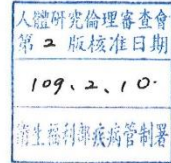 人體研究倫理審查會
第 2 版核准日期
109.2.10.
衛生福利部疾病管制署